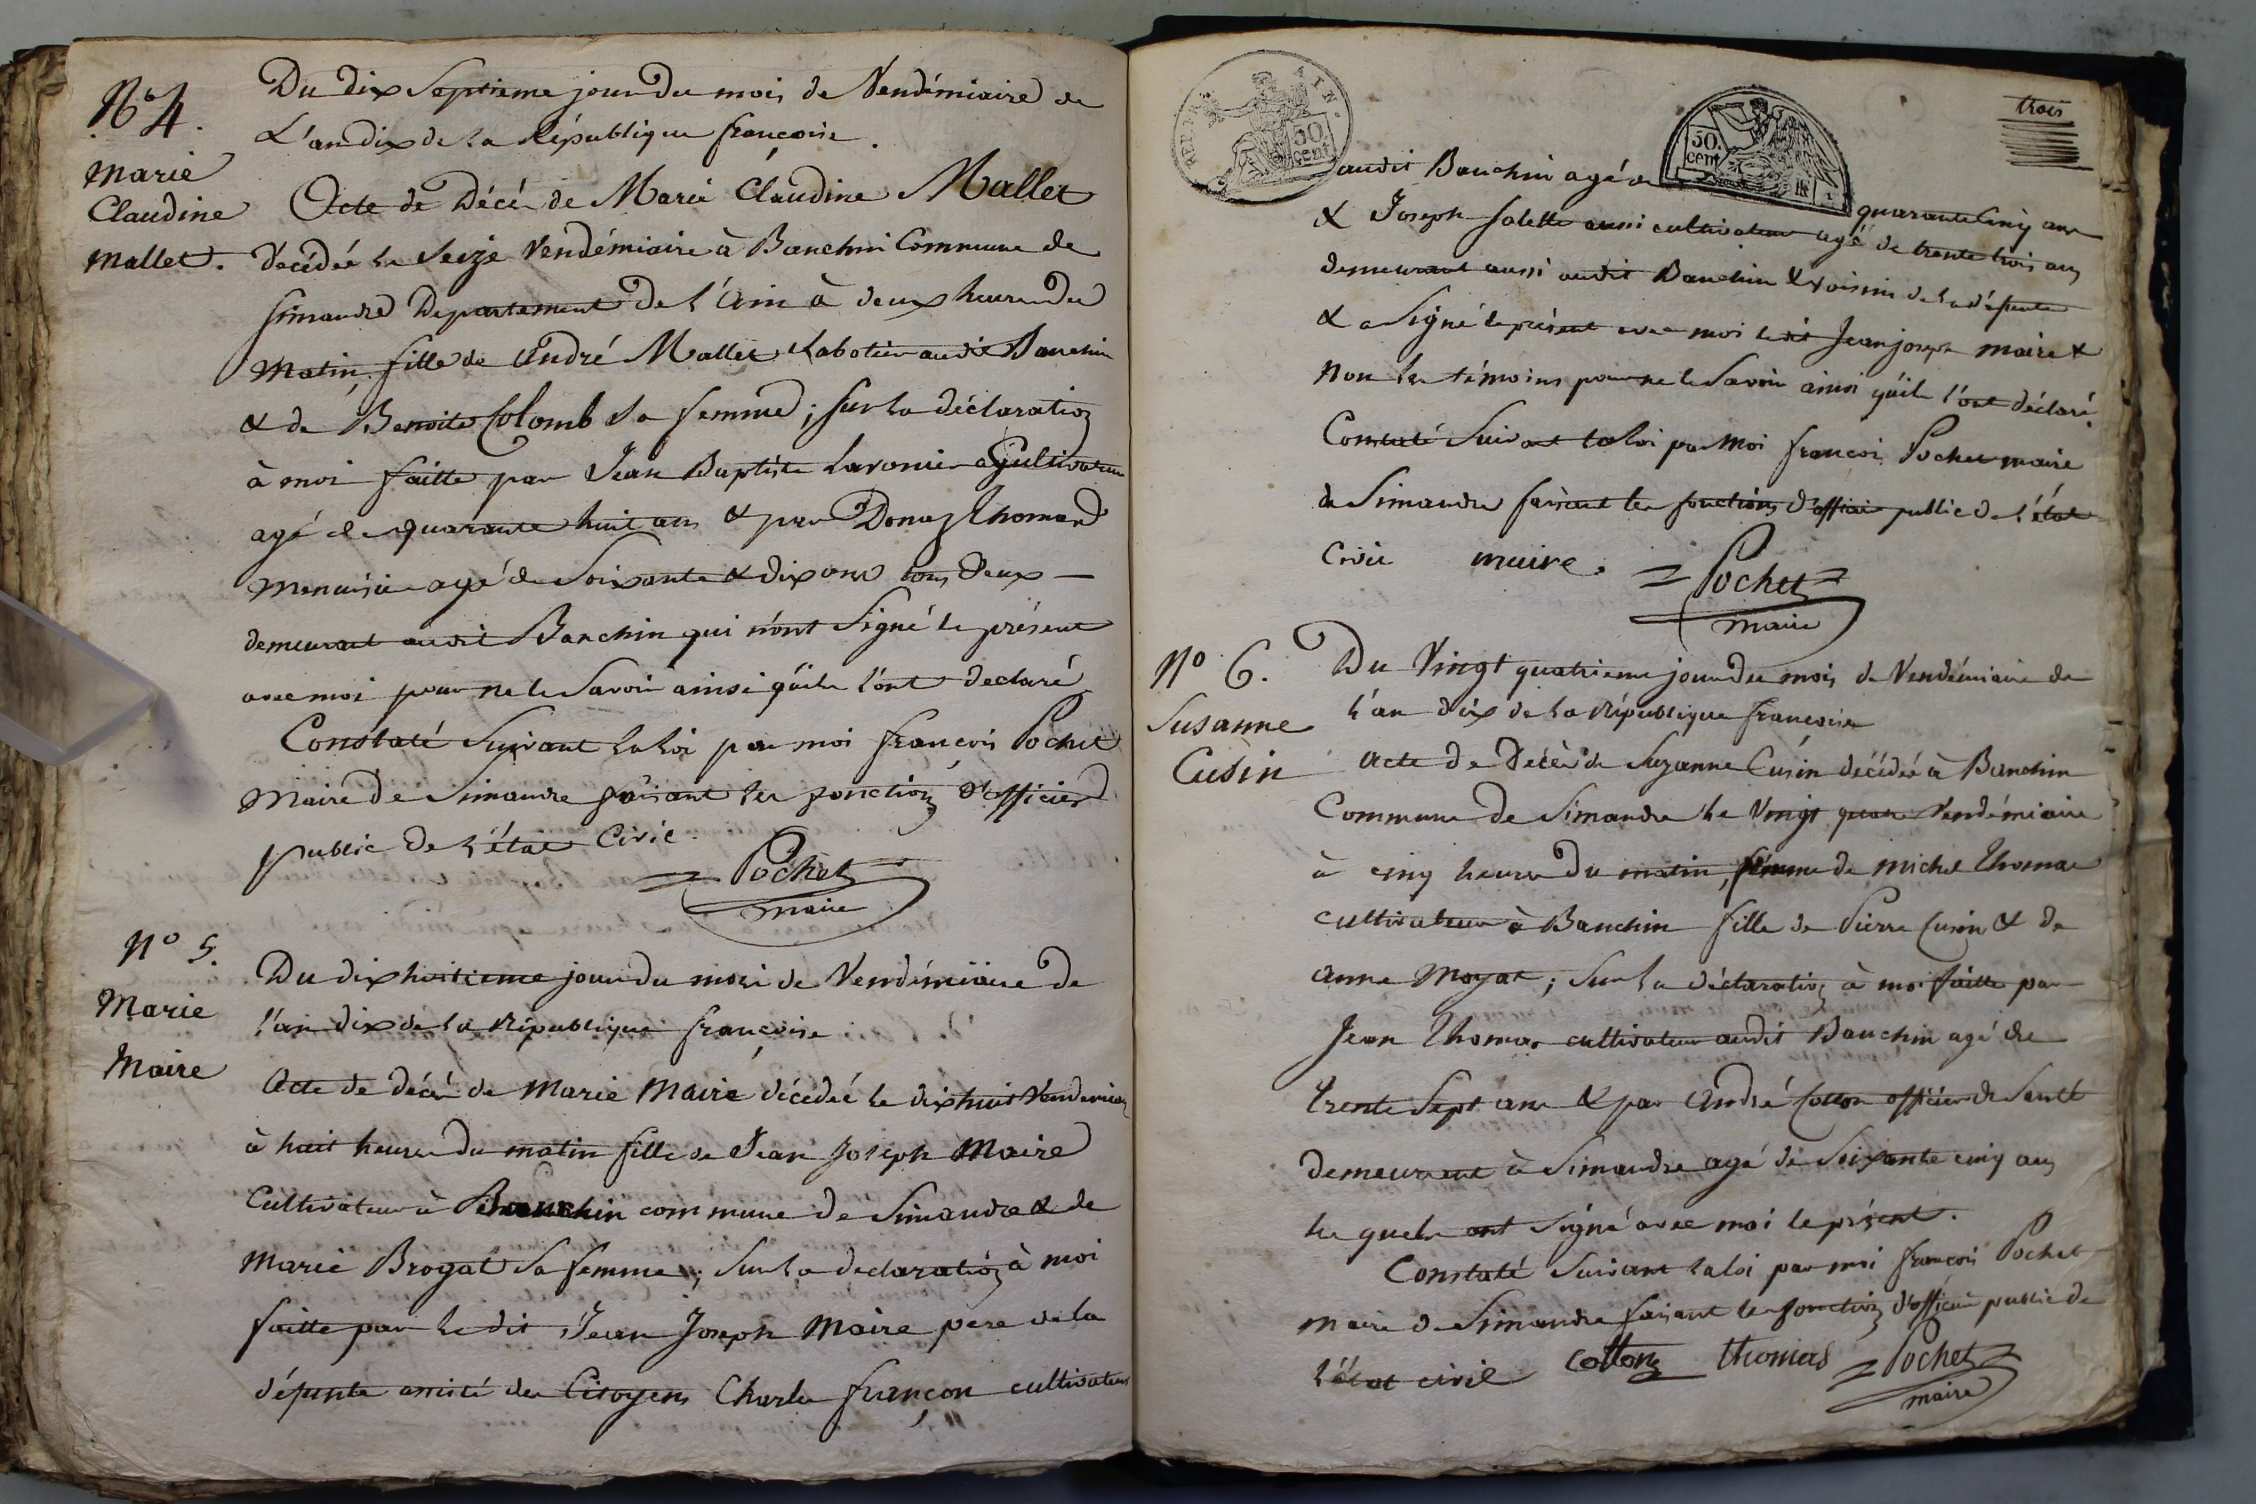 N.o 4.
Marie
Claudine
Mallet.
Du dix Septieme jour du mois de Vendémiaire de
L'an dix de la République françoise.
Acte de Décès de Marie Claudine Mallet
décédée le Seize Vendémiaire à Banchin Commune de
Simandre Departement de l'Ain à deux heures du
Matin, fille de André Mallet Sabotier audit Banchin
& de Benoite Colomb Sa femme; sur la déclaration
à moi faitte par Jean Baptiste Cultivateur
agé de quarante huit ans & par Donaz Thomand
Menuisier agé de Soixante & dix ans tous deux —
demeurant audit Banchin qui n'ont Signé le présent
avec moi pour ne le Savoir ainsi qu'ils l'ont declaré
Constaté Suivant la loi par moi françois Pochet
Maire de Simandre faisant les fonctions d'officier
public de l'état Civil.
Pochet
maire
N.o 5.
Marie
Maire
Du dix huitieme jour du mois de Vendémiaire de
l'an dix de la République françoise
Acte de décès de Marie Maire décédée le dix huit Vendemiaire
à huit heures du matin fille de Jean Joseph Maire
Cultivateur à Banchin commune de Simandre & de
Marie Brogat Sa femme; Sur la declaration à moi
faitte par le dit Jean Joseph Maire pere de la
défunte des Citoyens Charle françon cultivateur
AIN
50
cent
50.
cent
trois
audit Banchin agé de quarante Cinq ans
& Joseph Solette aussi cultivateur agé de trente trois ans
demeurant aussi audit Banchin & voisins de la défunte
& a Signé le présent avec moi ledit Jean joseph maire &
Non les témoins pour ne le Savoir ainsi qu'ils l'ont déclaré.
Constaté Suivant la loi par Moi françois Pochet maire
de Simandre faisant les fonctions d'officier public de l'état
Civil maire. Pochet
maire
N.o 6.
Susanne
Cusin
Du Vingt quatrieme jour du mois de Vendémiaire de
l'an dix de la République françoise
Acte de Décès de Suzanne Cusin décédée à Banchin
Commune de Simandre le Vingt quatre Vendémiaire
à cinq heures du matin, femme de Michel Thomas
cultivateur à Banchin fille de Pierre Cusin & de
anne Moyat; Sur la déclaration à moi faitte par
Jean Thomas cultivateur audit Banchin agé de
trente Sept ans & par André Cotton officier de Santé
demeurant à Simandre agé de Soixante cinq ans
les quels ont signé avec moi le présent.
Constaté Suivant la loi par moi françois Pochet
Maire de Simandre faisant les fonctions d'officier public de
l'état civil Cotton thomas Pochet
maire